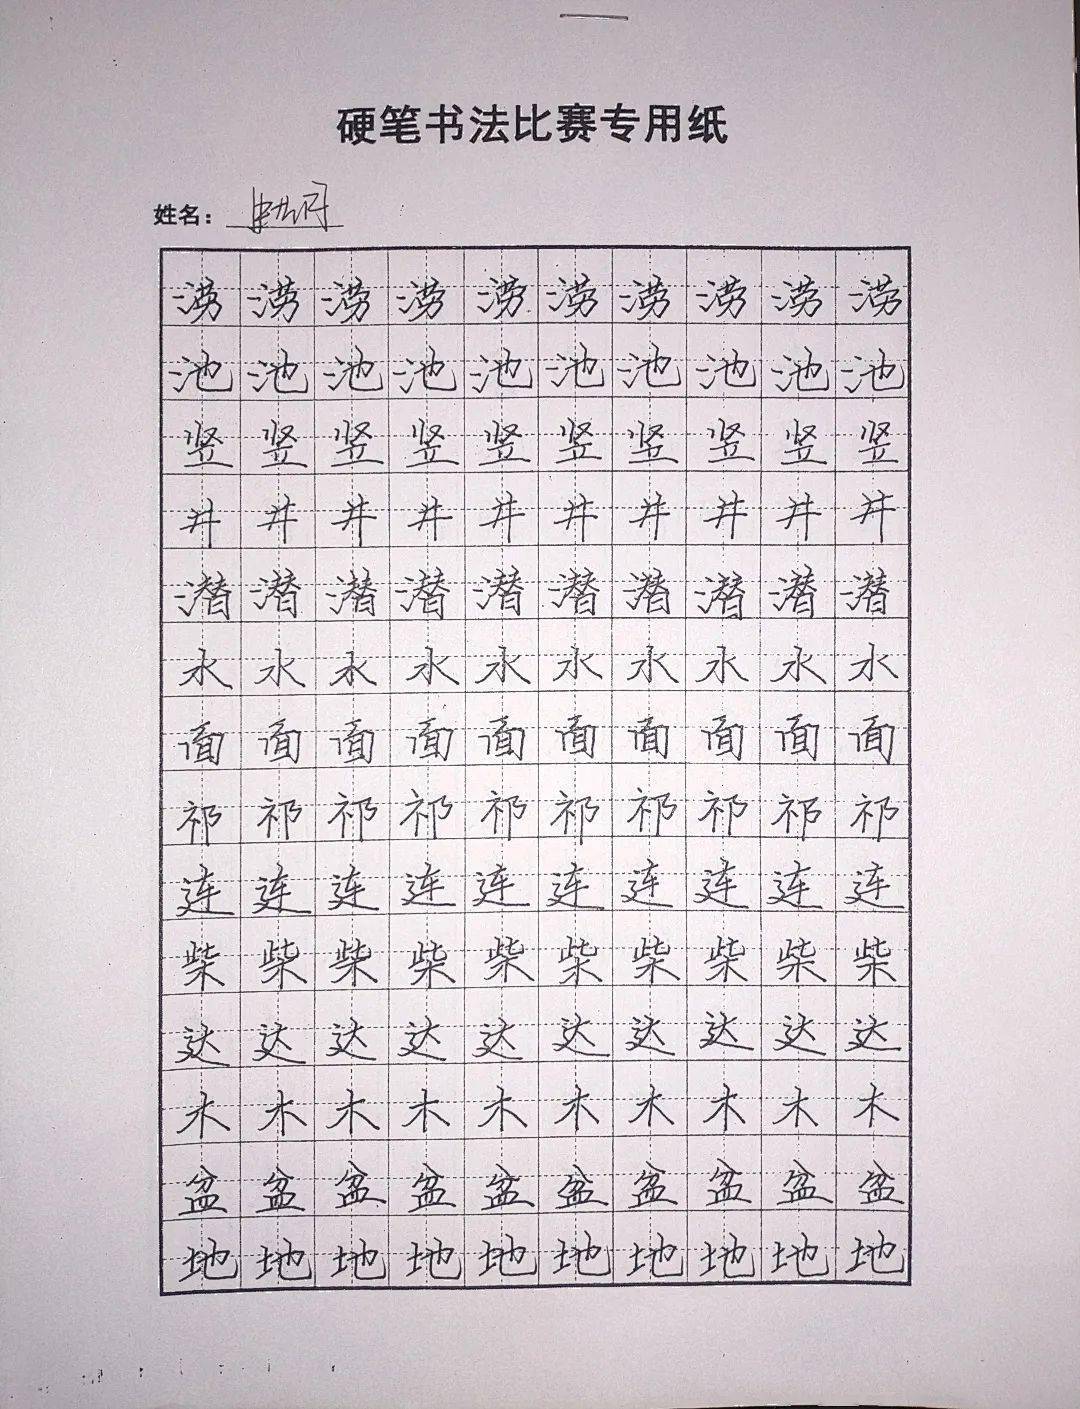 硬笔书法比赛专用纸
姓名：
涝涝涝涝涝涝涝涝涝涝
池池池池池池池池池池
竖竖竖竖竖竖竖竖竖竖
井井井井井井井井井井
潜潜潜潜潜潜潜潜潜潜
水水水水水水水水水水
面面面面面面面面面面
祁祁祁祁祁祁祁祁祁祁
连连连连连连连连连连
柴柴柴柴柴柴柴柴柴柴
达达达达达达达达达达
木木木木木木木木木木
盆盆盆盆盆盆盆盆盆盆
地地地地地地地地地地